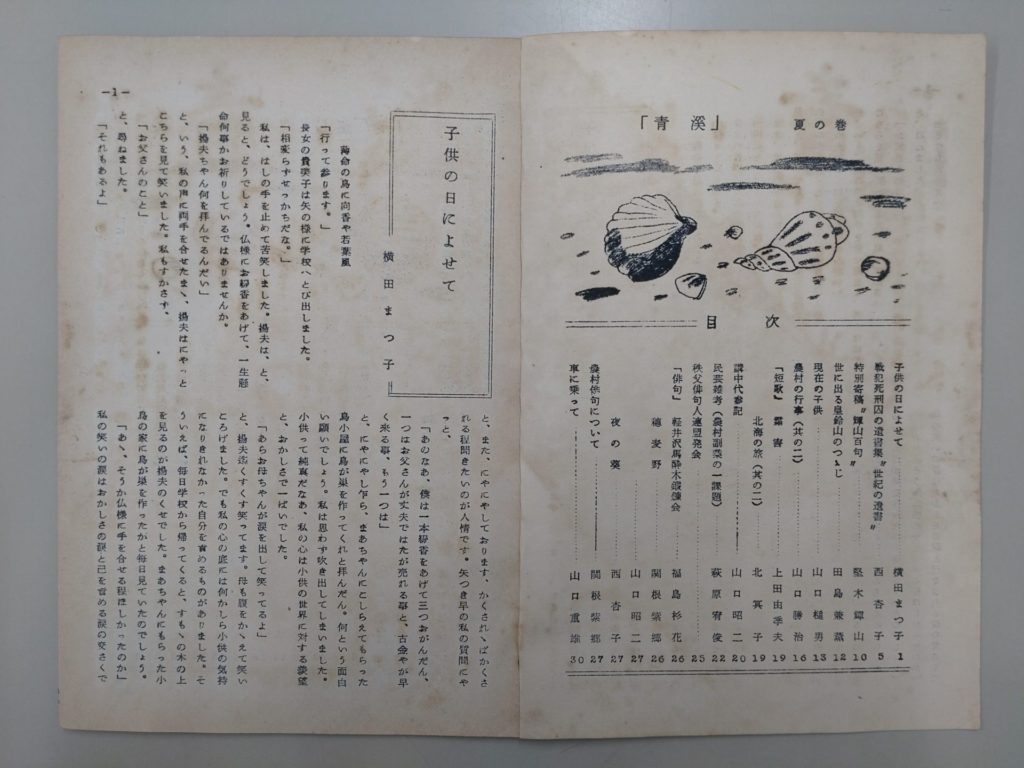 「青溪」 夏の巻
目次
子供の日によせて……横田まつ子 1
戦犯死刑囚の遺書集〝世紀の遺書〟……西杏子 5
特別寄稿〝輝山百句〟……堅木輝山 10
世に出る皇鈴山のつゝじ……田島兼薫 12
現在の子供……山口槌男 13
農村の行事(其の二)……山口勝治 16
「短歌」 露害……上田由季夫 19
北海の旅(其の二)……北冥子 19
講中代参記……山口昭二 20
民芸雑考(農村副業の一課題)……萩原宥俊 22
秩父俳句人連盟発会…… 25
「俳句」 軽井沢馬酔木鍛錬会……福島杉花 26
穂麦野……関根紫郷 26
……山口昭二 27
夜の葵……西杏子 27
農村俳句について……関根紫郷 27
車に乗って……山口重雄 30
—1—
子供の日によせて
横田まつ子
薄命の鳥に向香や若葉風
「行って参ります。」
長女の貴美子は矢の様に学校へとび出しました。
「相変らずせっかちだな。」
私は、はしの手を止めて苦笑しました。揚夫は、と、
見ると、どうでしょう。仏様にお線香をあげて、一生懸
命何事かお祈りしているではありませんか。
「揚夫ちゃん何を拝んでるんだい」
と、いう、私の声に両手を合せたまゝ、揚夫はにやっと
こちらを見て笑いました。私もすかさず、
「お父さんのこと」
と、尋ねました。
「それもあるよ」
と、また、にやにやしております、かくされゝばかくさ
れる程聞きたいのが人情です。矢つぎ早の私の質問にや
っと、
「あのなあ、僕は一本線香をあげて三つおがんだん、
一つはお父さんが丈夫ではたが売れる事と、古金やが早
く来る事、もう一つは」
と、にやにやし乍ら、まあちゃんにこしらえてもらった
鳥小屋に鳥が巣を作ってくれと拝んだん。何という面白
い願いでしょう。私は思わず吹き出してしまいました。
小供って純真だなあ、私の心は小供の世界に対する羨望
と、おかしさで一ぱいでした。
「あらお母ちゃんが涙を出して笑ってるよ」
と、揚夫迄くすくす笑ってます。母も腹をかゝえて笑い
ころげました。でも私の心の底には何かしら小供の気持
になりきれなかった自分を責めるものがありました。そ
ういえば、毎日学校から帰ってくると、すもゝの木の上
を見るのが揚夫のくせでした。まあちゃんにもらった小
鳥の家に鳥が巣を作ったかと毎日見ていたのでしょう。
「あゝ、そうか仏様に手を合せる程ほしかったのか」
私の笑いの涙はおかしさの涙と己を責める涙の交さくで